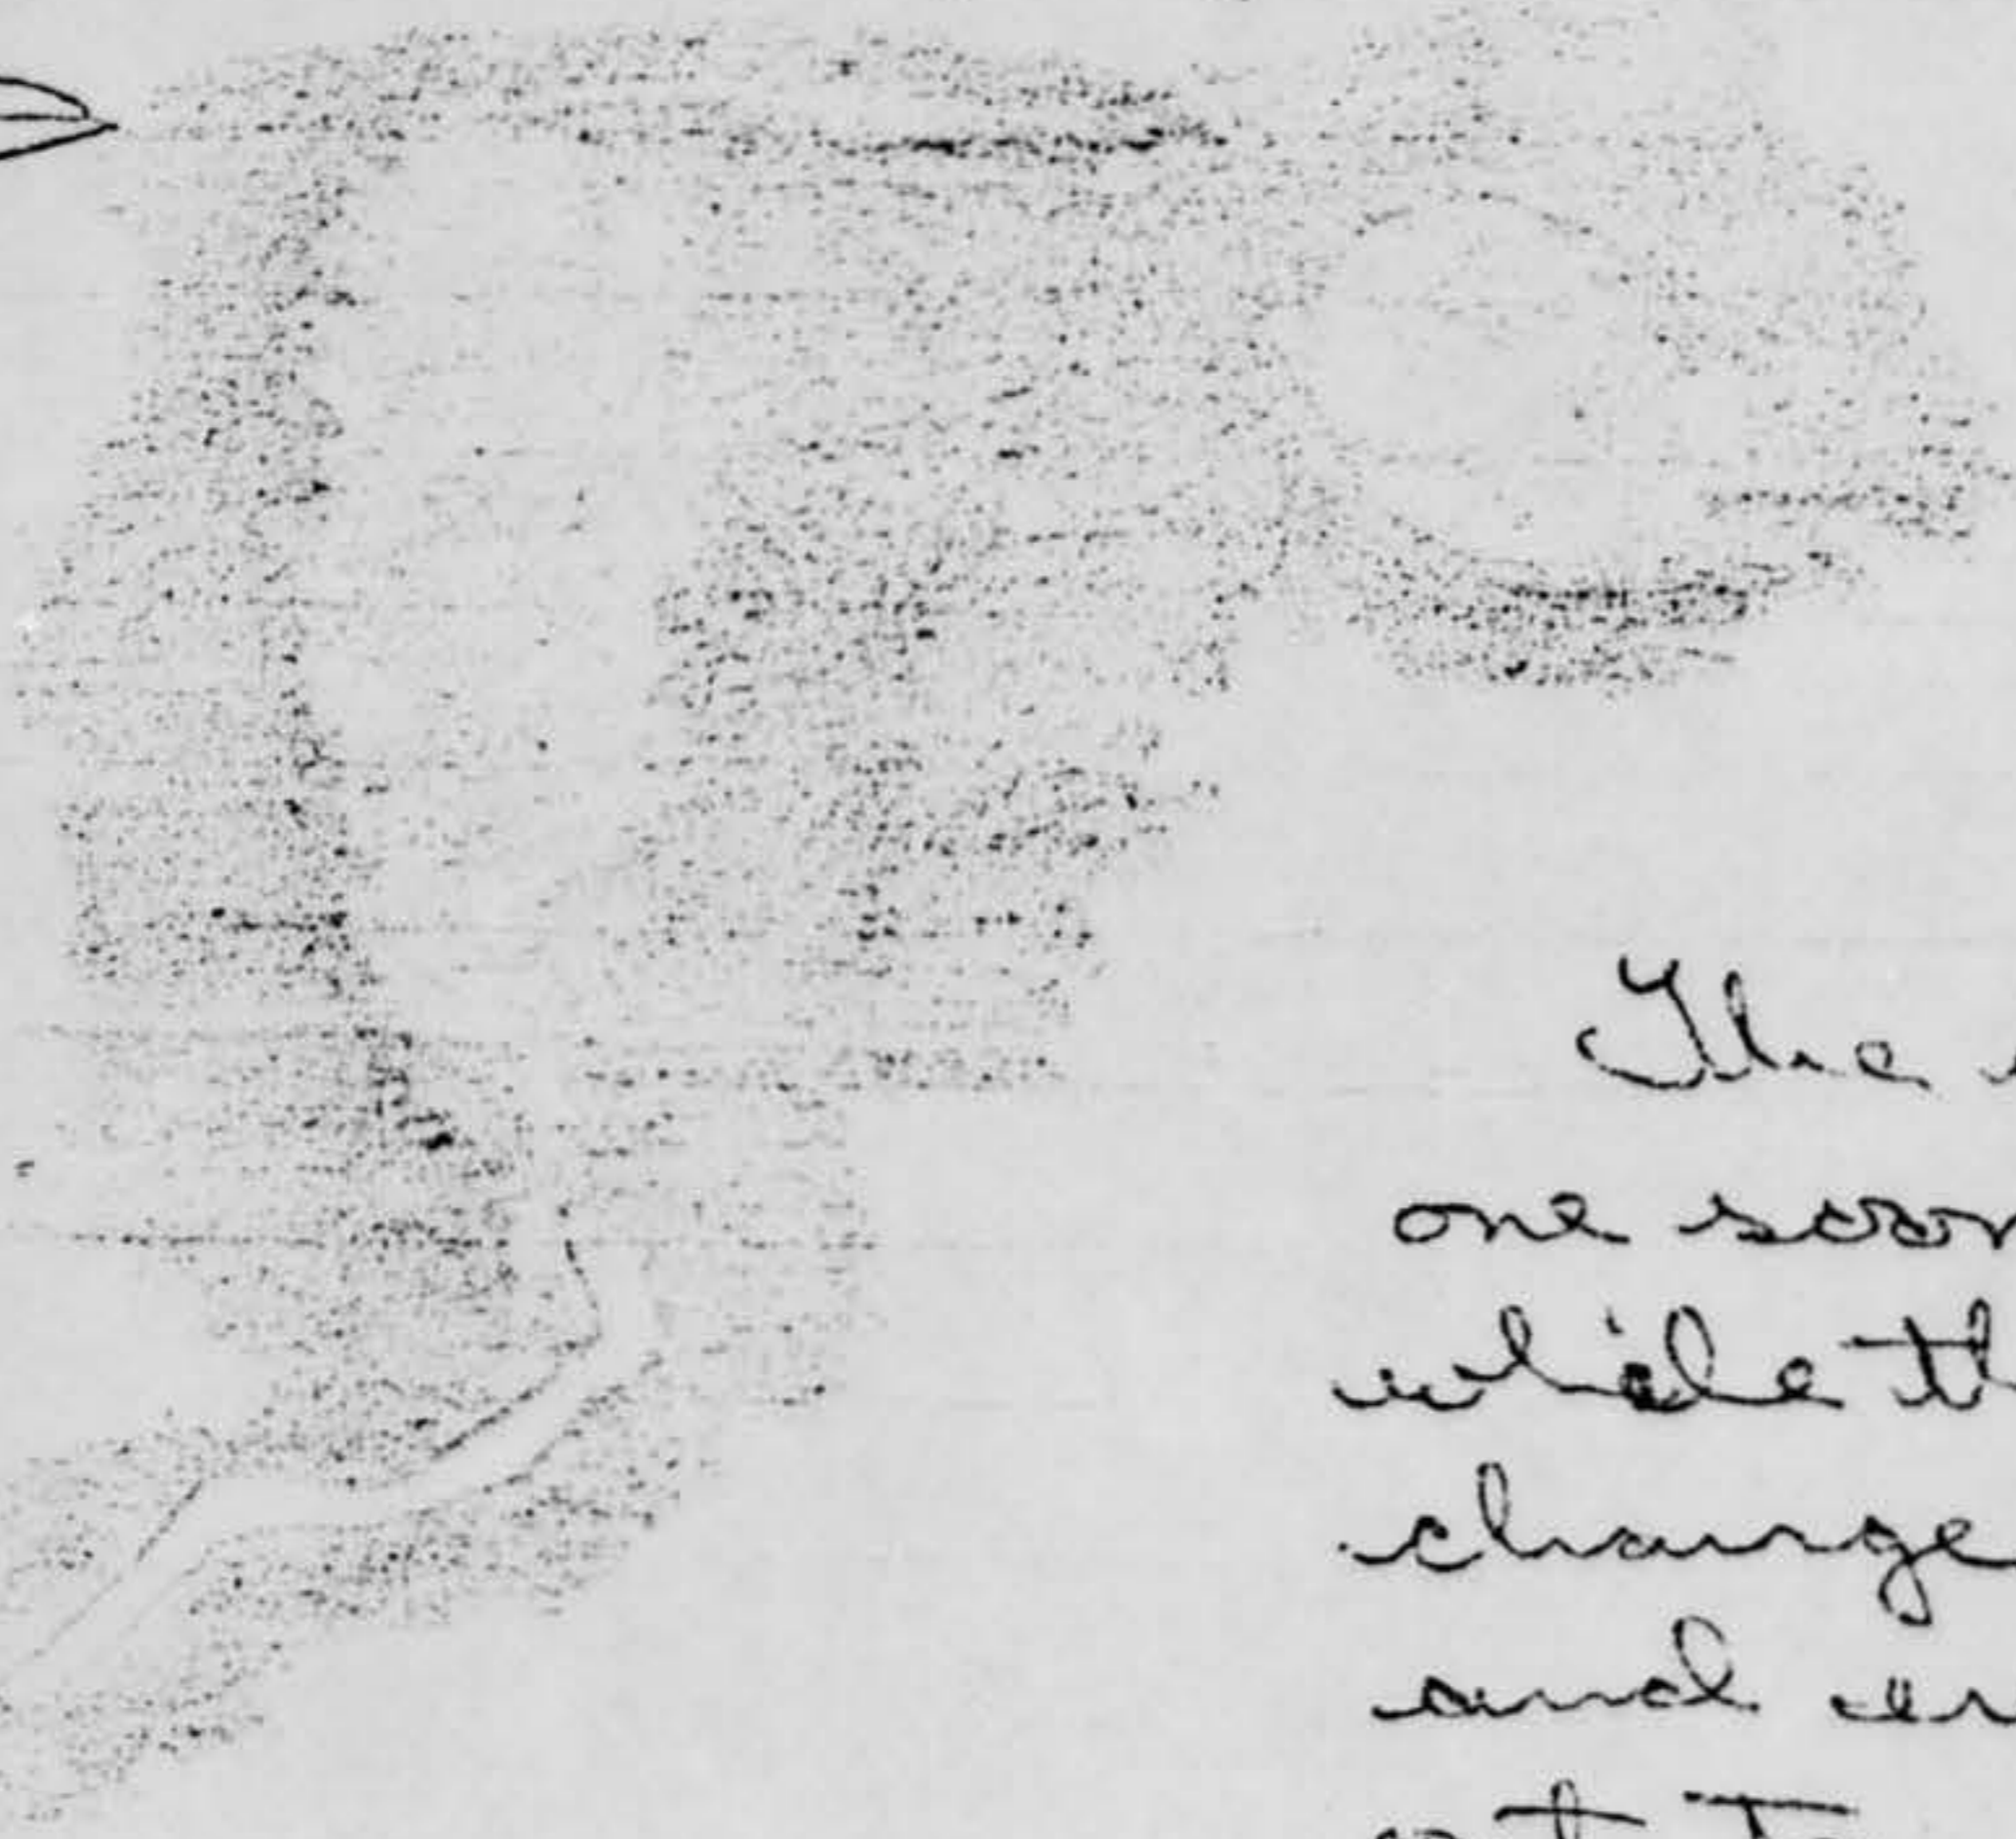 The
one soon
while th
change
and